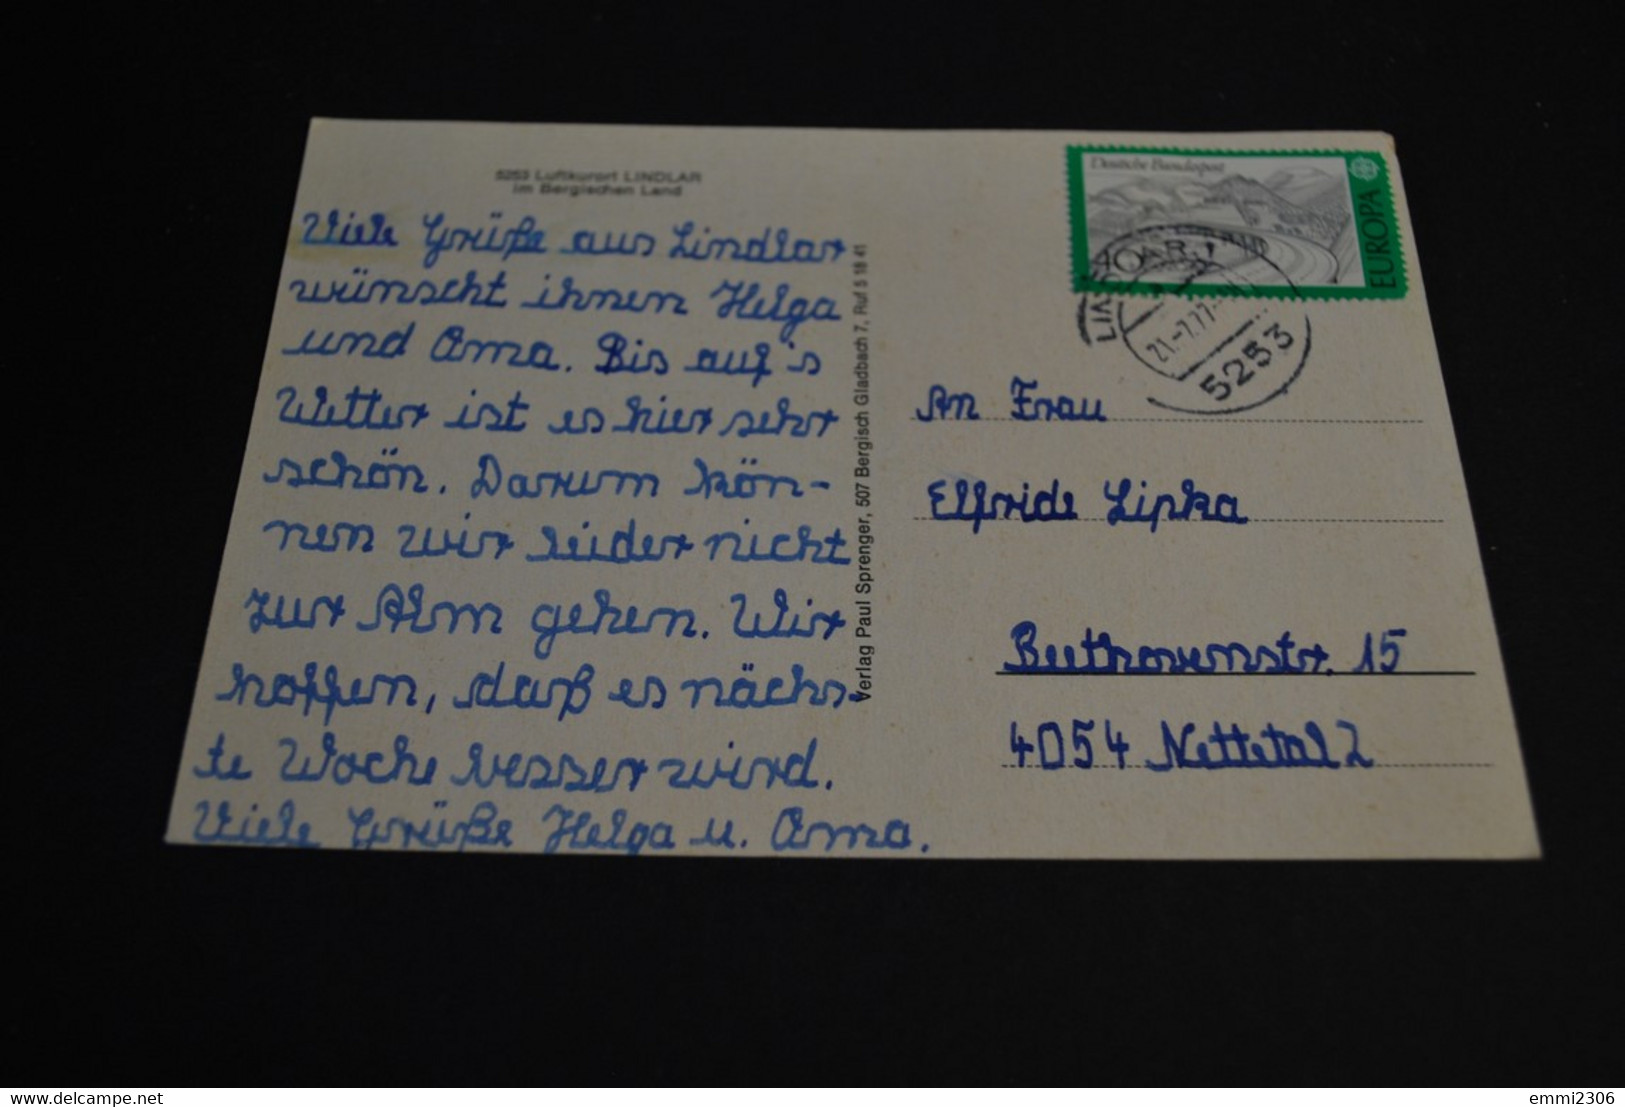 5253 Luftkurort LINDLAR
im Bergischen Land
Viele Grüße aus Lindlar
wünscht ihnen Helga
und Oma. Bis auf's
Wetter ist es hier sehr
schön. Darum kön-
nen wir leider nicht
zur Alm gehen. Wir
hoffen, daß es nächs-
te Woche besser wird.
Viele Grüße Helga u. Oma.
Verlag Paul Sprenger, 507 Bergisch Gladbach 7, Ruf 5 18 41
Deutsche Bundespost
EUROPA
40
21.-7.77
5253
An Frau
Elfride Lipka
Beethovenstr. 15
4054 Nettetal 2
delcampe.net
emmi2306